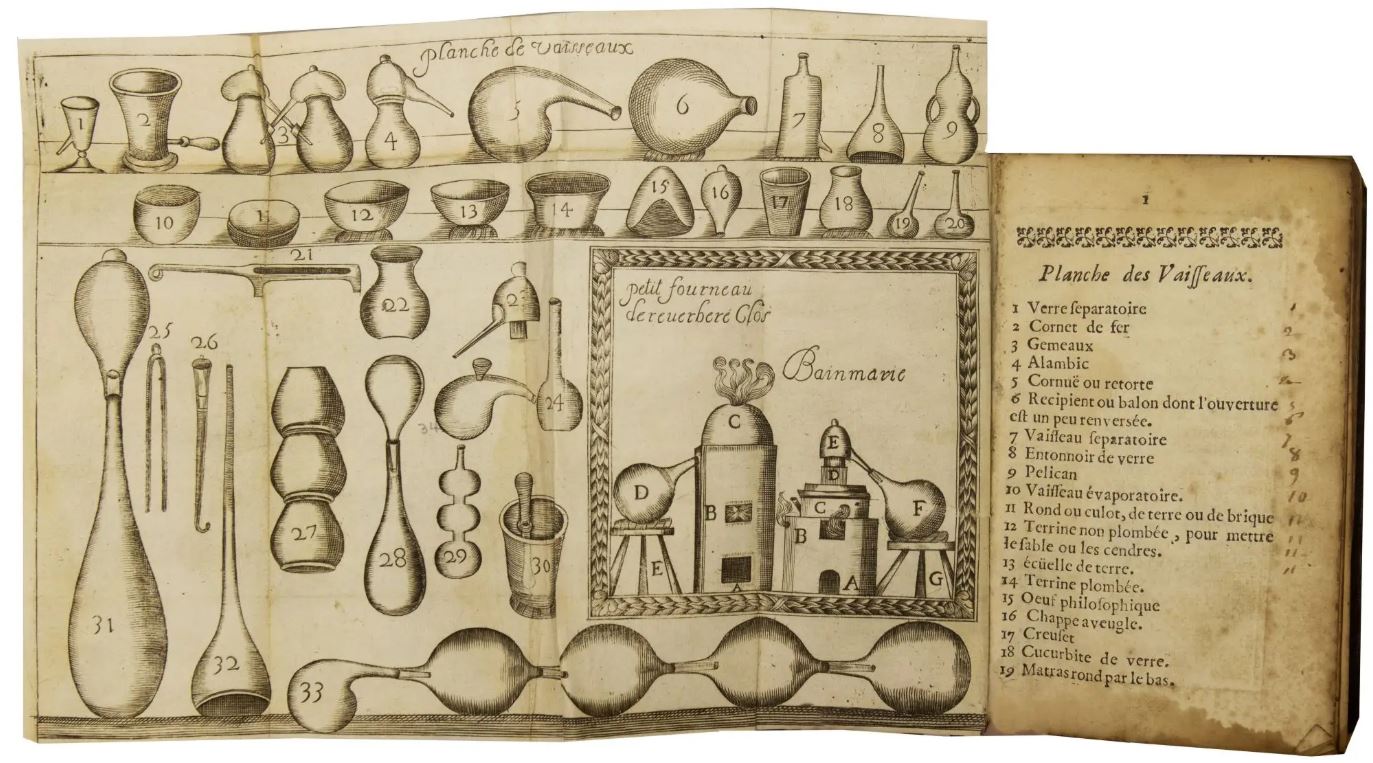 planche de vaisseaux
1 2 3 4 5 6 7 8 9
10 11 12 13 14 15 16 17 18 19 20
21
22
23
24
25
26
27
28
29
30
31
32
33
34
petit fourneau
de reuerbere Clos
Bainmarie
C
D
B
E
E
D
C
B
A
F
G
1
Planche des Vaiſſeaux.
1 Verre ſeparatoire
2 Cornet de fer
3 Gemeaux
4 Alambic
5 Cornuë ou retorte
6 Recipient ou balon dont l'ouverture
eſt un peu renverſée.
7 Vaiſſeau ſeparatoire
8 Entonnoir de verre
9 Pelican
10 Vaiſſeau évaporatoire.
11 Rond ou culot, de terre ou de brique
12 Terrine non plombée, pour mettre
le ſable ou les cendres.
13 écüelle de terre.
14 Terrine plombée.
15 Oeuf philoſophique
16 Chappe aveugle.
17 Creuſet
18 Cucurbite de verre.
19 Matras rond par le bas.